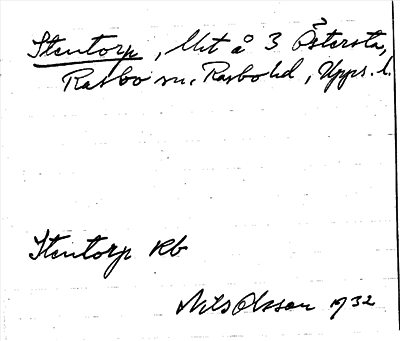 Stentorp, Utj å 3 Åstersta,
Rasbo sn, Rasbo hd, Upps. l.
Stentorp Rb
Nils Olsson 1932